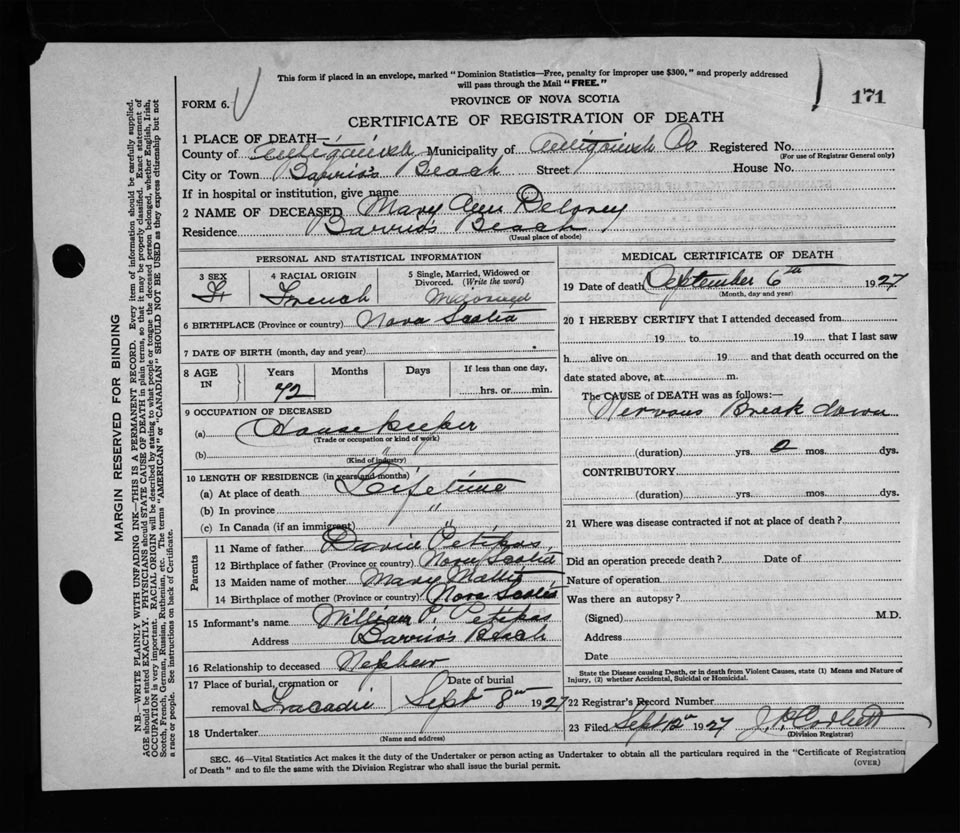 This form if placed in an envelope, marked "Dominion Statistics—Free, penalty for improper use $300," and properly addressed
will pass through the Mail "FREE."
FORM 6.
PROVINCE OF NOVA SCOTIA
171
CERTIFICATE OF REGISTRATION OF DEATH
1 PLACE OF DEATH—
County of Antigonish Municipality of Antigonish Co Registered No.
(For use of Registrar General only)
City or Town Barrio's Beach Street House No.
If in hospital or institution, give name
2 NAME OF DECEASED Mary Ann Delorey
Residence Barrio's Beach
(Usual place of abode)
PERSONAL AND STATISTICAL INFORMATION
3 SEX F. 4 RACIAL ORIGIN French 5 Single, Married, Widowed or Divorced. (Write the word) Widowed
6 BIRTHPLACE (Province or country) Nova Scotia
7 DATE OF BIRTH (month, day and year)
8 AGE IN Years 72 Months Days If less than one day, hrs. or min.
9 OCCUPATION OF DECEASED
(a) House keeper
(Trade or occupation or kind of work)
(b)
(Kind of industry)
10 LENGTH OF RESIDENCE (in years and months)
(a) At place of death Lifetime
(b) In province "
(c) In Canada (if an immigrant) " "
Parents
11 Name of father David Petipas
12 Birthplace of father (Province or country) Nova Scotia
13 Maiden name of mother Mary
14 Birthplace of mother (Province or country) Nova Scotia
15 Informant's name William P. Petipas
Address Barrio's Beach
16 Relationship to deceased Nephew
17 Place of burial, cremation or removal Tracadie Date of burial Sept 8th 1927
18 Undertaker
(Name and address)
MEDICAL CERTIFICATE OF DEATH
19 Date of death September 6th 1927
(Month, day and year)
20 I HEREBY CERTIFY that I attended deceased from
19 to 19 that I last saw
h alive on 19 and that death occurred on the
date stated above, at m.
The CAUSE of DEATH was as follows:—
Nervous Break down
(duration) yrs. 2 mos. dys.
CONTRIBUTORY
(duration) yrs. mos. dys.
21 Where was disease contracted if not at place of death?
Did an operation precede death? Date of
Nature of operation
Was there an autopsy?
(Signed) M.D.
Address
Date
State the Disease causing Death, or in death from Violent Causes, state (1) Means and Nature of
Injury, (2) whether Accidental, Suicidal or Homicidal.
22 Registrar's Record Number
23 Filed Sept 12th 1927 J. P. Corbett
(Division Registrar)
SEC. 46—Vital Statistics Act makes it the duty of the Undertaker or person acting as Undertaker to obtain all the particulars required in the "Certificate of Registration
of Death" and to file the same with the Division Registrar who shall issue the burial permit.
(OVER)
MARGIN RESERVED FOR BINDING
N.B.—WRITE PLAINLY WITH UNFADING INK—THIS IS A PERMANENT RECORD. Every item of information should be carefully supplied.
AGE should be stated EXACTLY. PHYSICIANS should STATE CAUSE OF DEATH in plain terms, so that it may be properly classified. Exact statement of
OCCUPATION is very important. RACIAL ORIGIN will be described by stating to what people or tongue the deceased person belonged, whether English, Irish,
Scotch, French, German, Russian, Ruthenian, etc. The terms "AMERICAN" or "CANADIAN" SHOULD NOT BE USED as they express citizenship but not
a race or people. See instructions on back of Certificate.